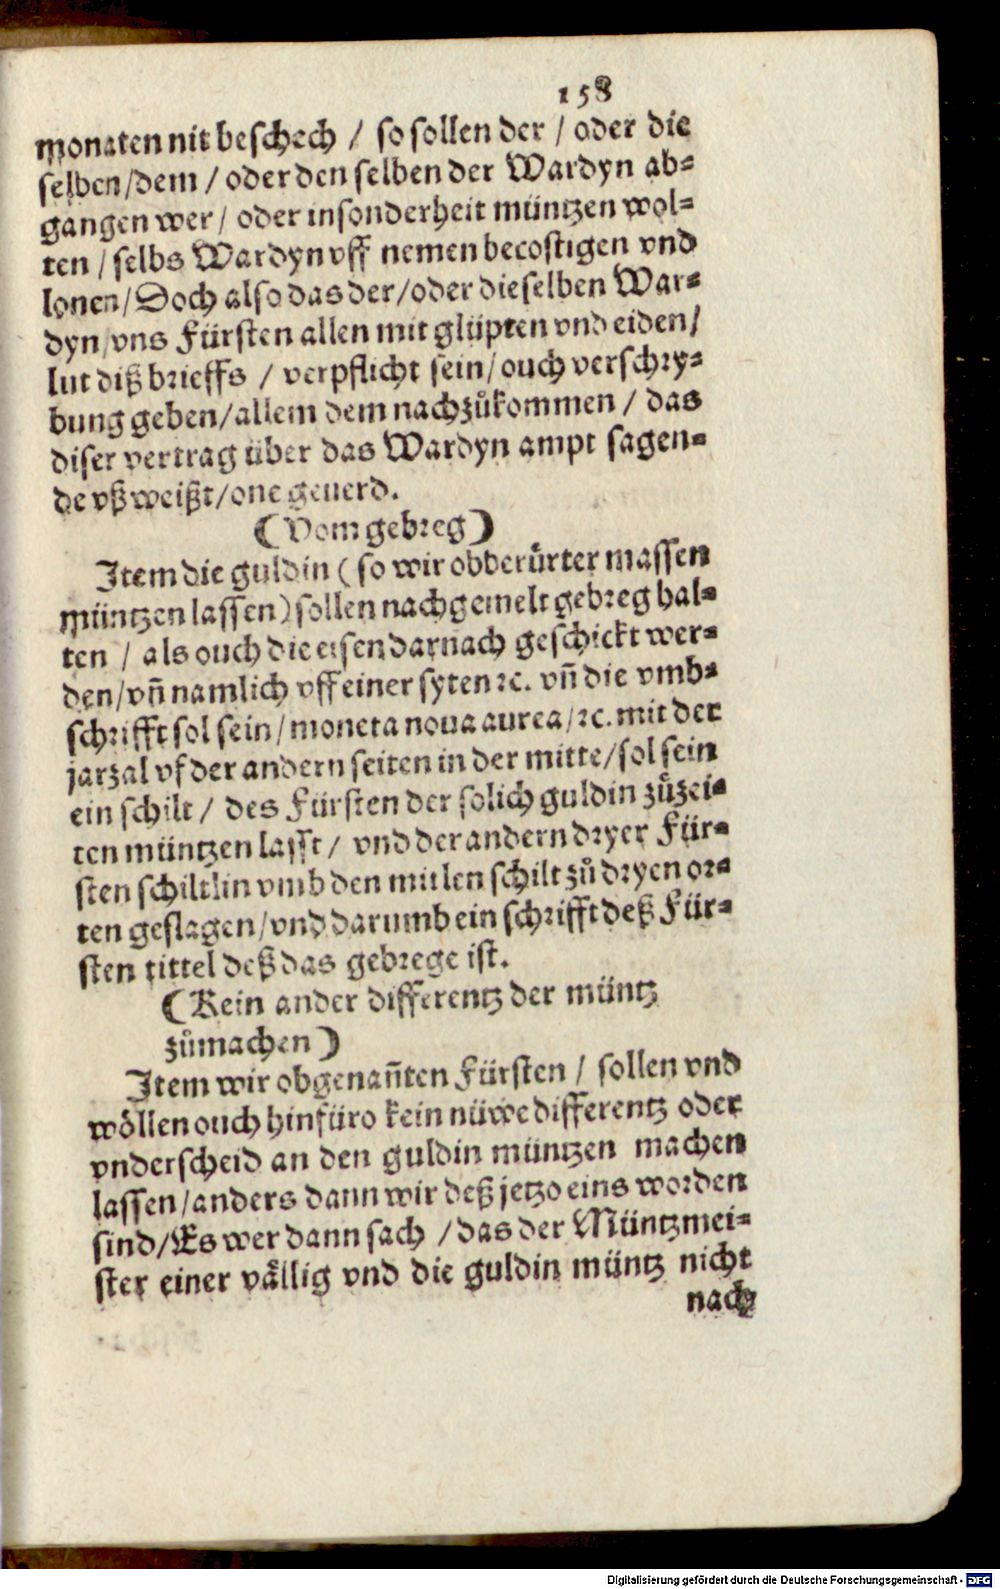 158
monaten nit beschech / so sollen der / oder die
selben/dem / oder den selben der Wardyn ab⸗
gangen wer / oder insonderheit müntzen wol⸗
ten / selbs Wardyn vff nemen becostigen vnd
lonen/Doch also das der/oder dieselben War⸗
dyn/vns Fürsten allen mit glüpten vnd eiden/
lut diß brieffs / verpflicht sein/ouch verschry⸗
bung geben/allem dem nachzůkommen / das
diser vertrag über das Wardyn ampt sagen⸗
de vßweißt/one geuerd.
(Vom gebreg)
Item die guldin (so wir obberůrter massen
müntzen lassen) sollen nachgemelt gebreg hal⸗
ten / als ouch die eisen darnach geschickt wer⸗
den/vñ namlich vff einer syten ꝛc. vñ die vmb⸗
schrifft sol sein/moneta noua aurea/ꝛc. mit der
jarzal vf der andern seiten in der mitte/sol sein
ein schilt / des Fürsten der solich guldin zůzei⸗
ten müntzen lasst / vnd der andern dryer Für⸗
sten schiltlin vmb den mitlen schilt zů dryen or⸗
ten geslagen/vnd darumb ein schrifft deß Für⸗
sten tittel deß das gebrege ist.
(Kein ander differentz der müntz
zůmachen)
Item wir obgenañten Fürsten / sollen vnd
wöllen ouch hinfüro kein nüwe differentz oder
vnderscheid an den guldin müntzen machen
lassen/anders dann wir deß jetzo eins worden
sind/Es wer dann sach /das der Müntzmei⸗
ster einer vällig vnd die guldin müntz nicht
nach
Digitalisierung gefördert durch die Deutsche Forschungsgemeinschaft - DFG